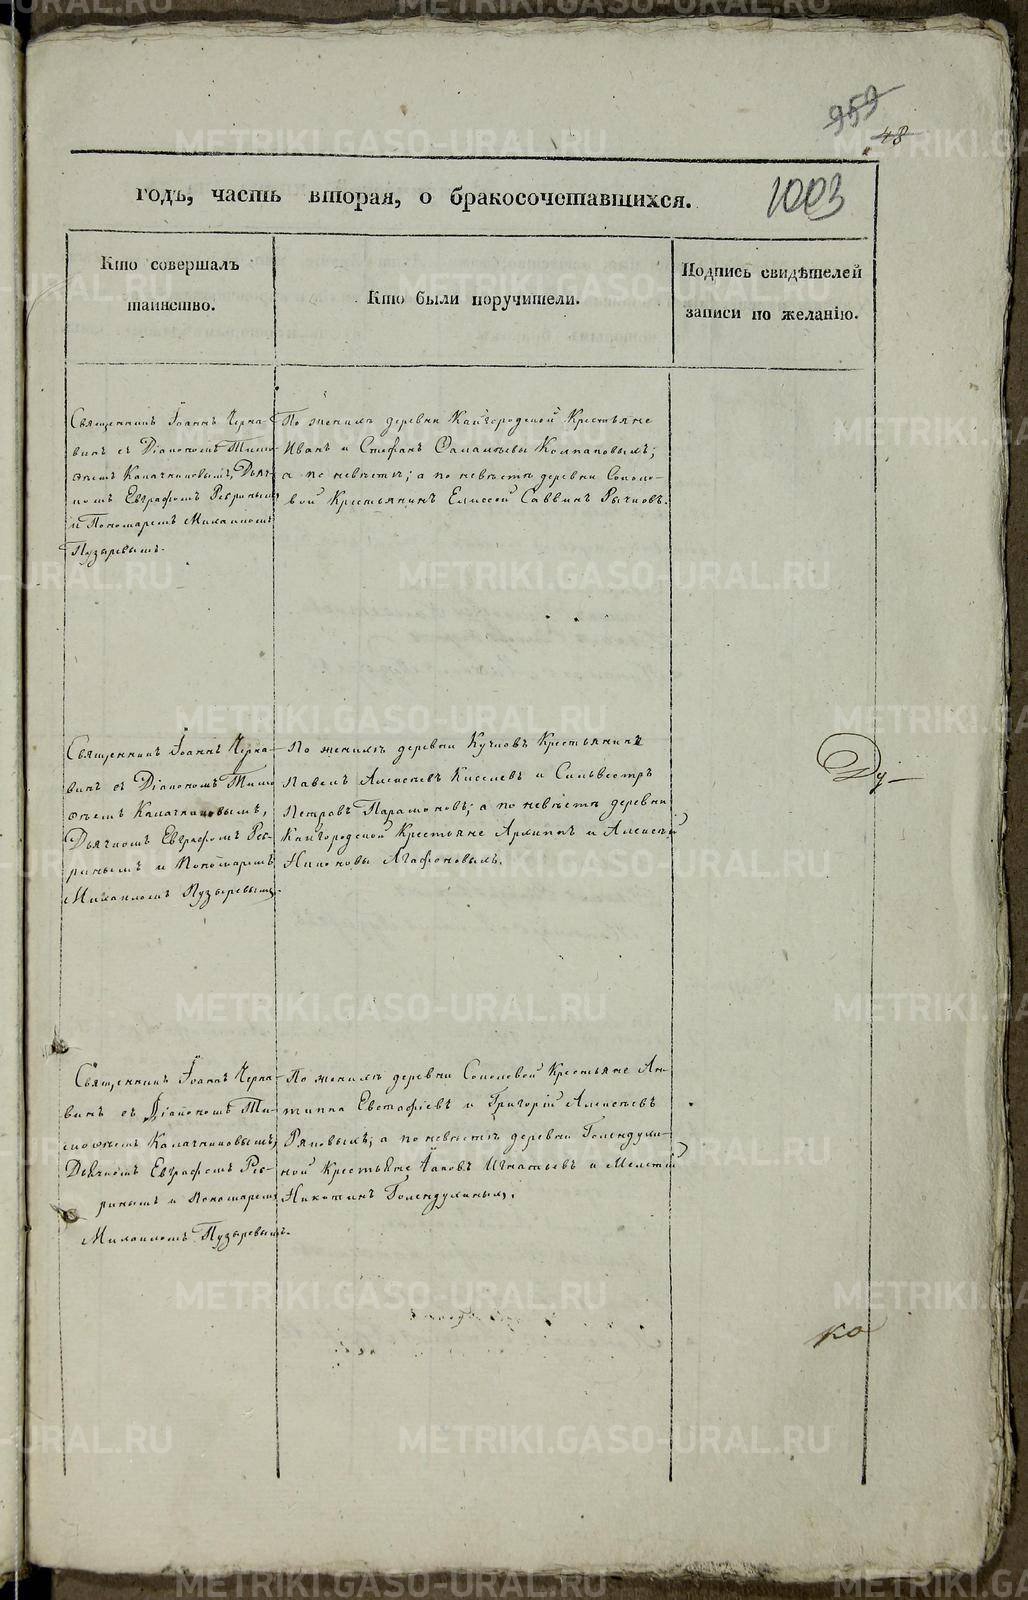 959
48
годъ, часть вторая, о бракосочетавшихся.
1003
Кто совершалъ
таинство.
Кто были поручители.
Подпись свидѣтелей
записи по желанію.
Священникъ Іоаннъ Черна-
винъ съ Діакономъ Тимо-
ѳеемъ Калачниковымъ, Дьяч-
комъ Евграфомъ Ребринымъ
и Пономаремъ Михаиломъ
Пузыревымъ.
По женихѣ деревни Кайгородской Крестьяне
Иванъ и Стефанъ Колпаковымъ;
а по невѣстѣ; а по невѣстѣ деревни Соколо-
вой Крестьянинъ Елисей Саввинъ Рычковъ.
Священникъ Іоаннъ Черна-
винъ съ Діакономъ Тимо
ѳеемъ Калачниковымъ,
Дьячкомъ Евграфомъ Реб-
ринымъ и Пономаремъ
Михаиломъ Пузыревымъ.
По женихѣ деревни Кучковъ Крестьянинъ
Павелъ Алексѣевъ Киселевъ и Сильвестръ
Петровъ Парамоновъ; а по невѣстѣ деревни
Кайгородской Крестьяне Архипъ и Алексѣй
Никоновы Агафоновымъ.
Священникъ Іоаннъ Черна-
винъ съ Діакономъ Ти-
моѳеемъ Калачниковымъ,
Дьячкомъ Евграфомъ Реб-
ринымъ и Пономаремъ
Михаиломъ Пузыревымъ.
По женихѣ деревни Соколовой Крестьяне Ан-
типпа Евстафіевъ и Григорій Алексѣевъ
Ряковымъ; а по невѣстѣ деревни Голендухи-
ной Крестьяне Іаковъ Игнатьевъ и Мелетій
Никитинъ Голендухинымъ.
Ду-
ко